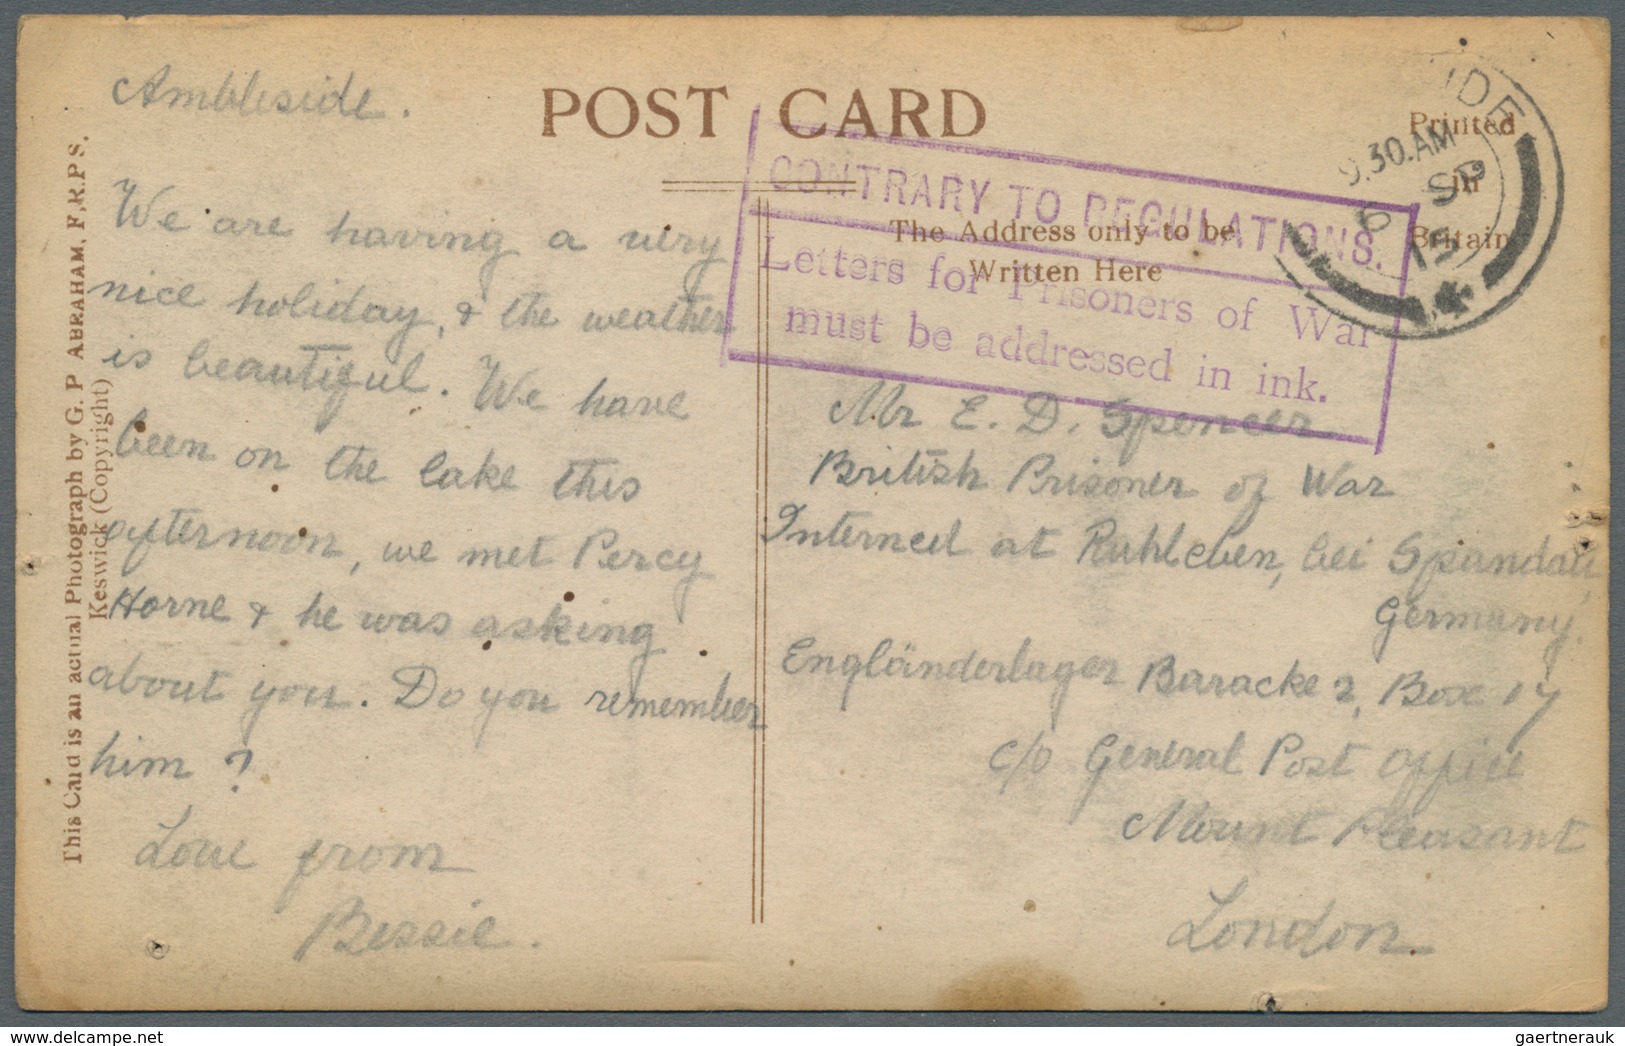 POST CARD
Printed
in
Britain
The Address only to be
Written Here
This Card is an actual Photograph by G. P ABRAHAM, F.R.P S.
Keswick (Copyright)
CONTRARY TO REGULATIONS.
Letters for Prisoners of War
must be addressed in ink.
9.30.AM
6 SP
15
Ambleside.
We are having a very
nice holiday, & the weather
is beautiful. We have
been on the lake this
afternoon, we met Percy
Horne & he was asking
about you. Do you remember
him ?
Love from
Bessie.
Mr E. D. Spencer
British Prisoner of War
Interned at Ruhleben, bei Spandau
Germany.
Engländerlager Baracke 2, Box 17
c/o General Post Office
Mount Pleasant
London.
gaertnerauk
www.delcampe.net